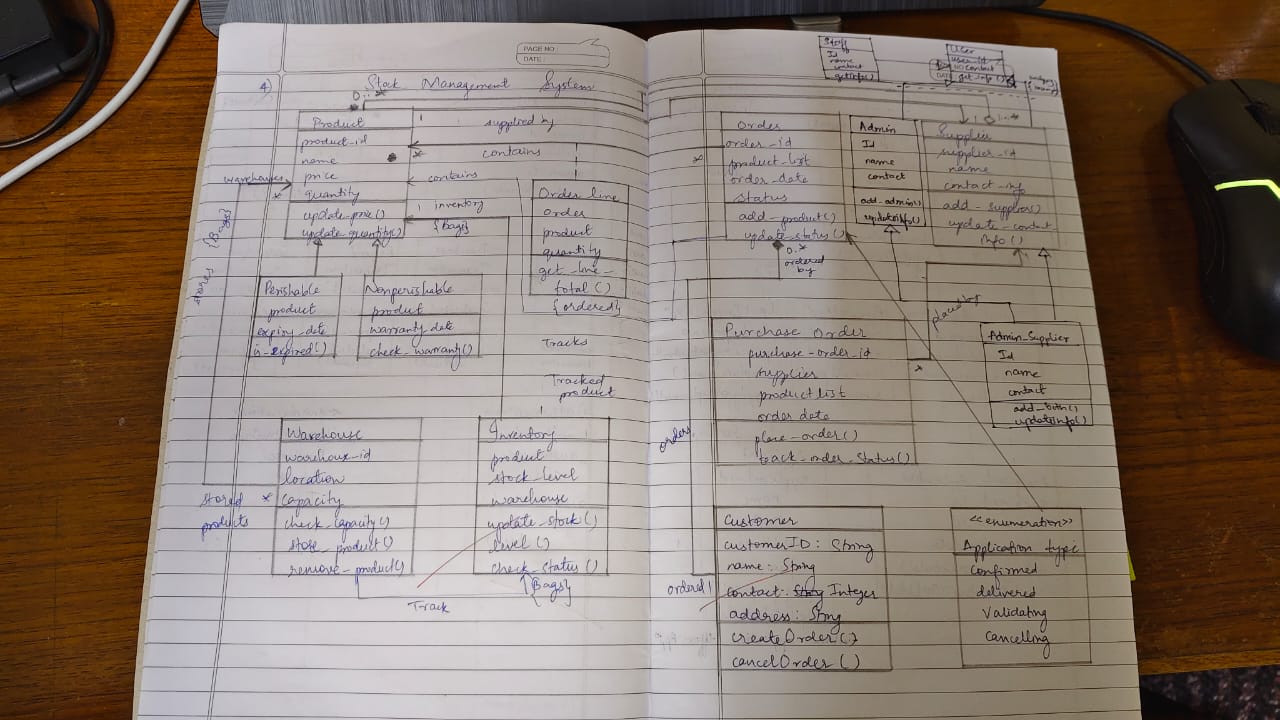 PAGE NO.
DATE
4)
Stock Management System
0..*
Product
product_id
name
price
quantity
update_price()
update_quantity()
1
supplied by
*
contains
contains
1
inventory
{Bags}
warehouses
*
{Bags}
stores
Order line
order
product
quantity
get_line_
total ()
{ordered}
Perishable
product
expiry_date
is_expired()
Nonperishable
product
warranty_date
check_warranty()
Tracks
Tracked
product
1
Warehouse
warehouse_id
location
capacity
check_capacity()
store_product()
remove_product()
stored
products
*
Inventory
product
stock_level
warehouse
update_stock()
level ()
check_status ()
{Bags}
Track
Staff
Id
name
contact
getinfo()
User
user_id
NO contact
DATE
get_info()
Order
order_id
product_list
order_date
status
add_product()
update_status()
*
0..*
ordered
by
Admin
Id
name
contact
add_admin()
updateinfo()
1
Supplier
supplier_id
name
contact_info
add_suppliers()
update_contact_
info ()
placed by
Purchase Order
purchase_order_id
supplier
product list
order date
place_order()
track_order_status()
*
Admin_Supplier
Id
name
contact
add_both()
updateinfo()
orders
ordered 1
Customer
customerID : String
name : String
contact : Integer
address : String
createOrder ()
cancelOrder ()
<<enumeration>>
Application type
Confirmed
delivered
Validating
Cancelling